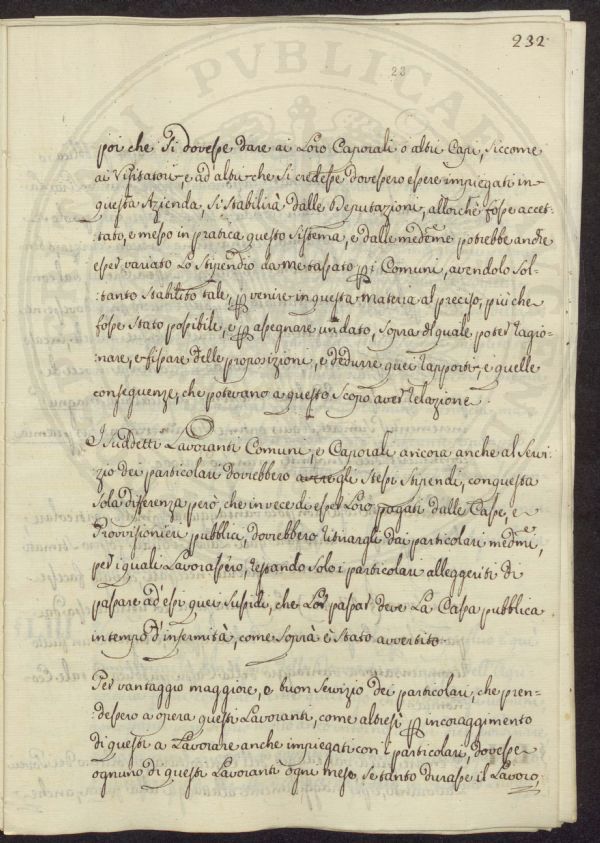 232
23
poi che si dovesse dare ai Loro Caporali o altri Capi, siccome
ai Visitatori, e ad altri che si credesse dovessero essere impiegati in
questa Azienda, si stabilirà dalle Deputazioni, allorchè fosse accet-
:tato, e messo in pratica questo sistema, e dalle medeme potrebbe anche
esser variato Lo Stipendio da me tassato p i Comuni, avendolo sol-
:tanto stabilito tale, p venire in questa materia al preciso, più che
fosse stato possibile, e p assegnare un dato, sopra del quale poter ragio-
:nare, e fissare delle proposizioni, e dedurre quei rapporti, e quelle
conseguenze, che potevano a questo scopo aver relazione.
I suddetti Lavoranti Comuni, e Caporali ancora anche al Servi-
zio dei particolari dovrebbero gli stessi stipendi, con questa
sola differenza però, che invece di esser Loro pagati dalle Casse, e
Provvisionieri pubblici, dovrebbero ritirargli dai particolari medmi,
per i quali Lavorassero, restando solo i particolari alleggeriti di
passare ad essi quei sussidi, che Lor passar deve La Cassa pubblica
in tempo d'infermità, come sopra è stato avvertito.
Per vantaggio maggiore, e buon servizio dei particolari, che pren-
:dessero a opera questi Lavoranti, come altresì p incoraggimento
di questi a Lavorare anche impiegati con i particolari, dovesse
ognuno di questi Lavoranti ogni mese, se tanto durasse il Lavoro,